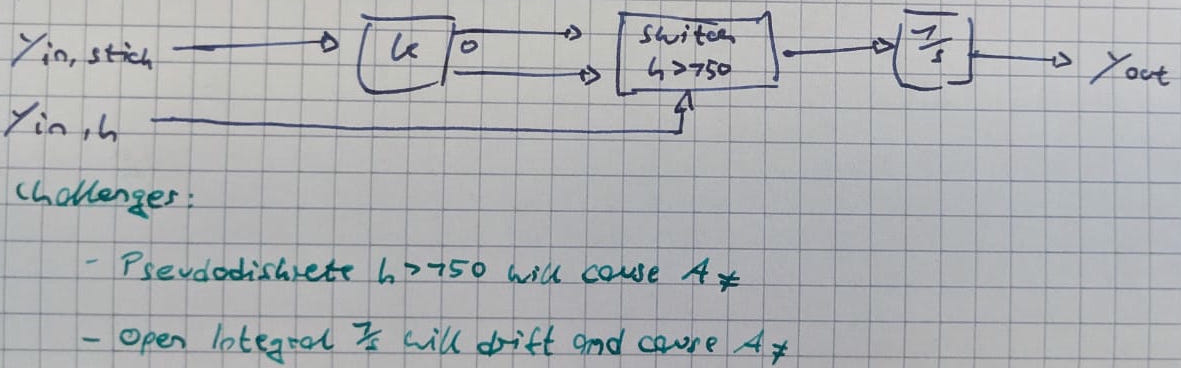 Yin, stick K 0 switch 1/s Yout
h > 150
Yin, h
Challenges:
- Pseudodiskrete h > 150 will cause A ≠
- Open Integral 1/s will drift and cause A ≠